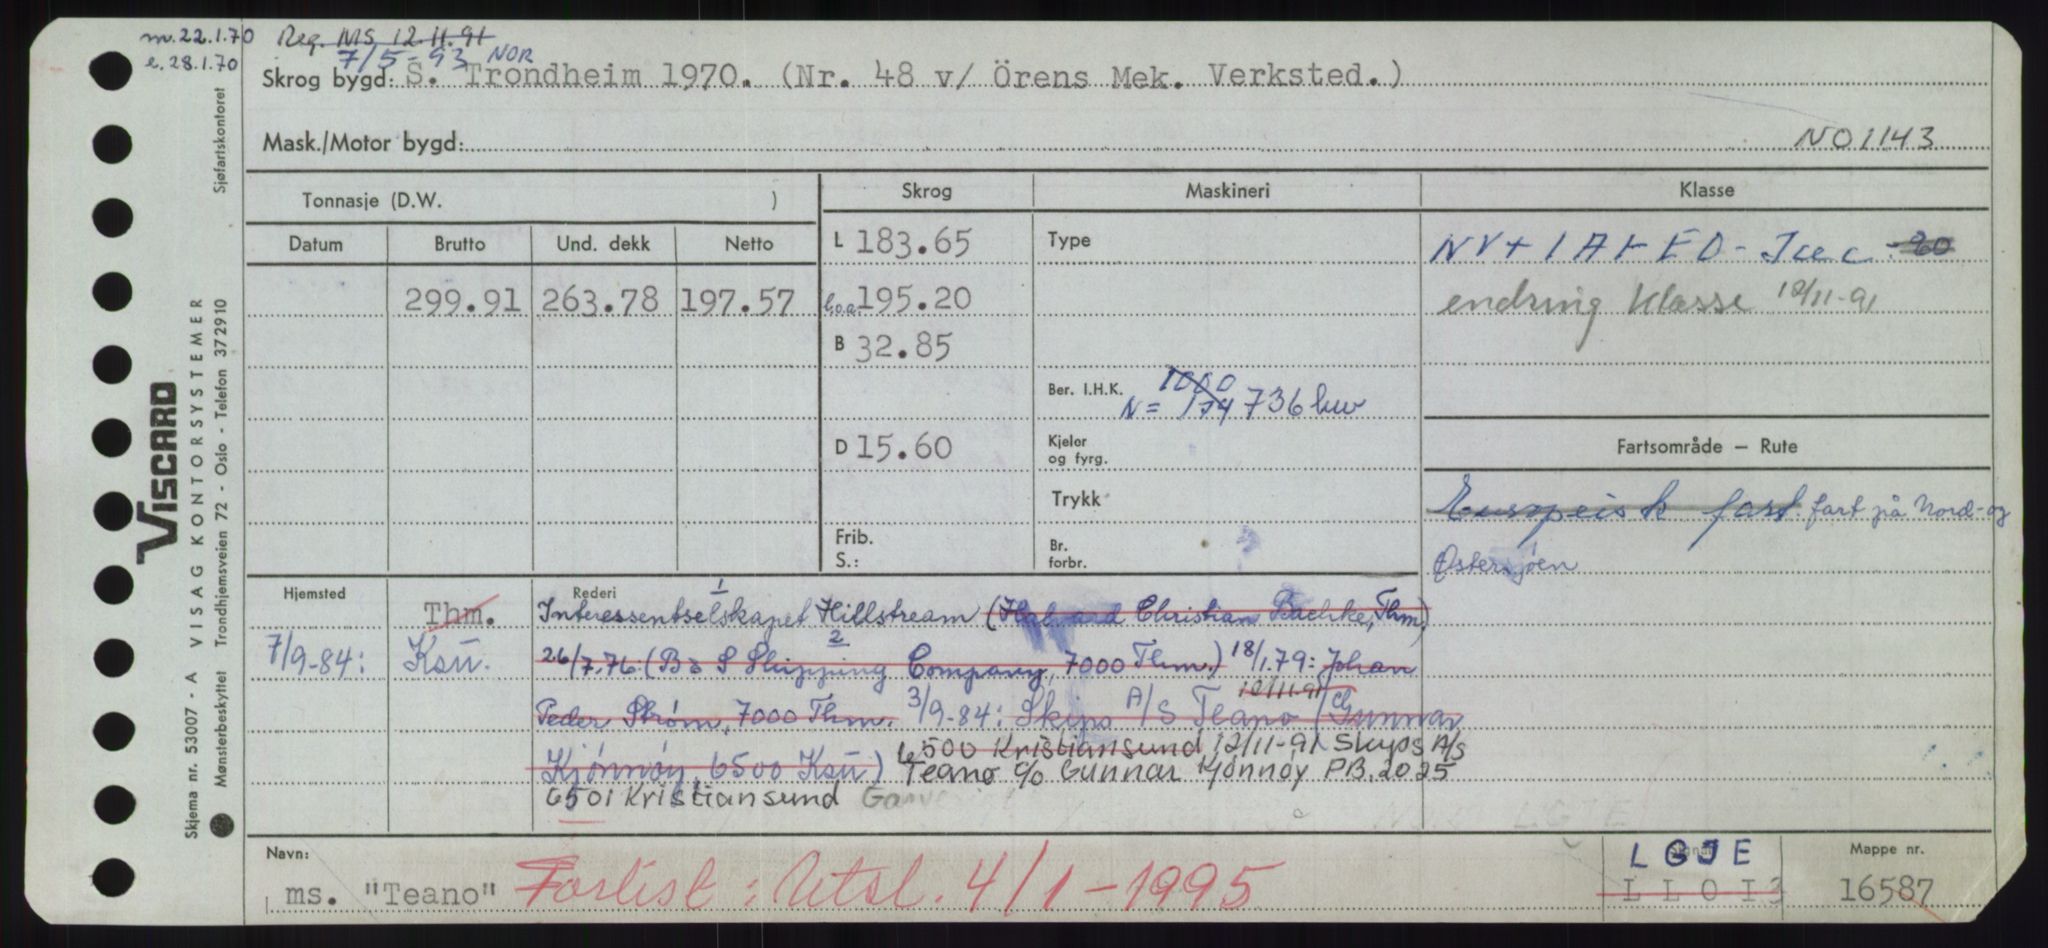 m. 22.1.70 Reg. MS 12.11.91
e. 28.1.70 7/5-93 NOR
Skrog bygd: S. Trondheim 1970. (Nr. 48 v/ Örens Mek. Verksted.)
Mask./Motor bygd: NO1143
Tonnasje (D.W. ) Skrog Maskineri Klasse
Datum Brutto Und. dekk Netto L 183.65 Type
299.91 263.78 197.57 l.o.a. 195.20
endring Klasse 12/11-91
B 32.85
Ber. I.H.K. 1000
N= 174 736 kw
D 15.60 Kjeler og fyrg. Fartsområde — Rute
Trykk Europeisk fart. fart på Nord- og
Østersjøen
Frib. Br.
S.: forbr.
Hjemsted Rederi
Thm. Interessentselskapet Hillstream (Halvard Christian Bachke, Thm.)
7/9-84: Ksu. 26/7.76: (B S Shipping Company, 7000 Thm.) 18/1.79: Johan
Peder Strøm, 7000 Thm. 3/9-84: Skips A/S Teano (Gunnar
12/11-91
Kjønnøy, 6500 Ksu) 6500 Kristiansund 12/11-91 Skips A/S
Teano c/o Gunnar Kjønnøy PB. 2025
6501 Kristiansund
Navn: Signal Mappe nr.
LGJE
ms. "Teano" Forlist: Utsl. 4/1-1995 L L O I 3 16587
VISCARD
VISAG KONTORSYSTEMER
Skjema nr. 53007 - A
Mønsterbeskyttet Trondhjemsveien 72 - Oslo - Telefon 372910 Sjøfartskontoret